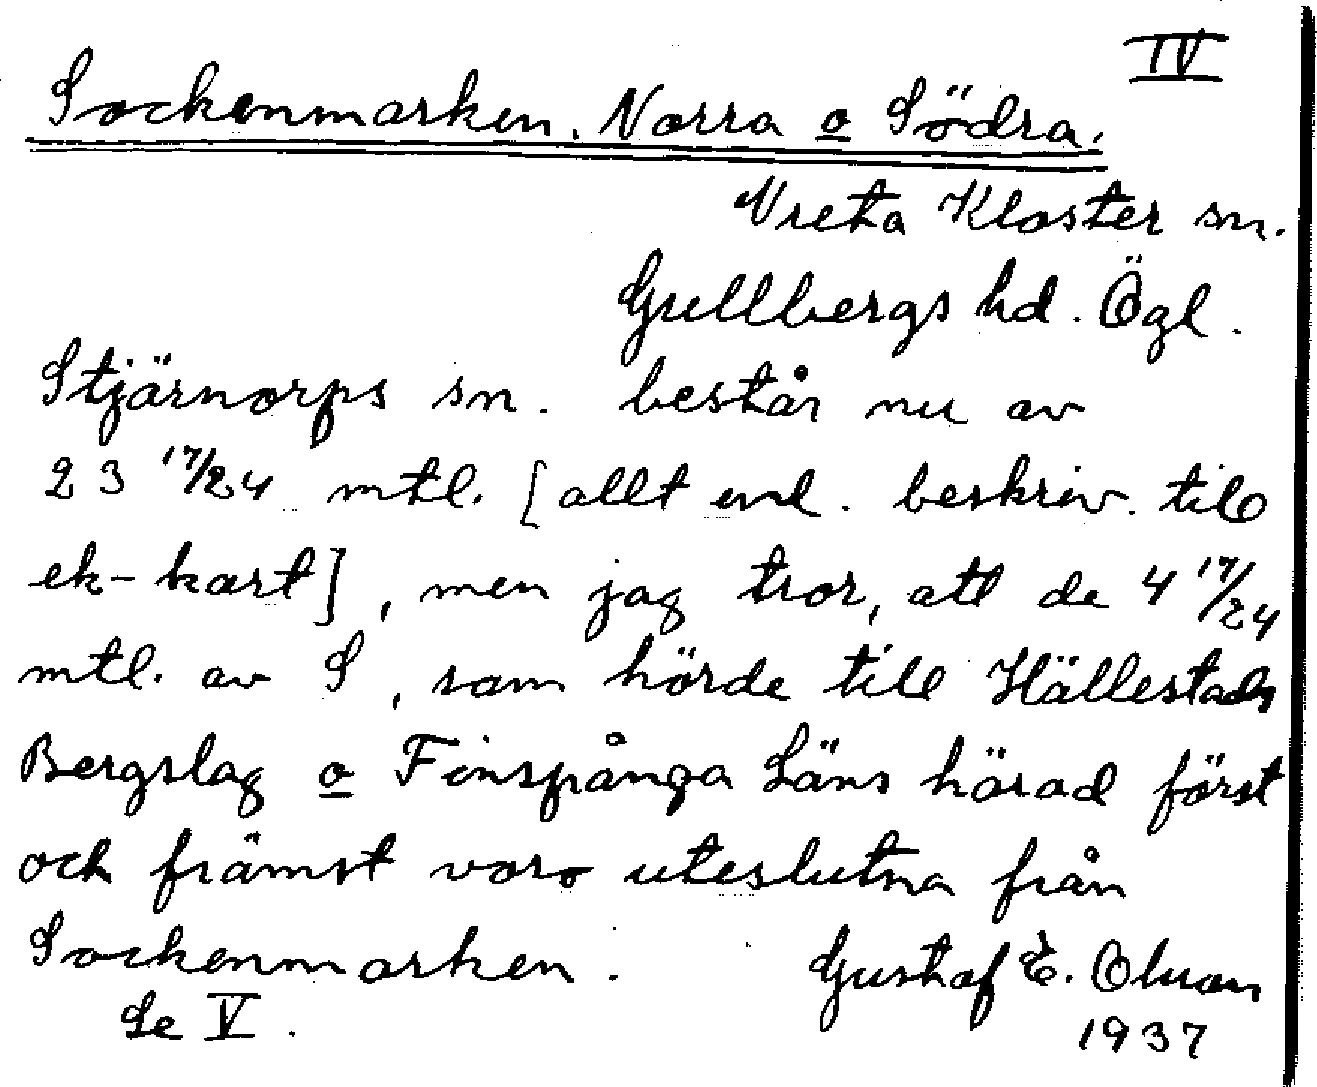 IV
Sockenmarken. Norra o Södra.
Vreta Kloster sn.
Gullbergs hd. Ögl.
Stjärnorps sn. består nu av
23 17/24 mtl. [allt enl. beskriv. till
ek-kart], men jag tror, att de 4 17/24
mtl. av S, som hörde till Hällestads
Bergslag o Finspånga Läns härad först
och främst voro uteslutna från
Sockenmarken.
Gustaf E. Olsson
Se V.
1937